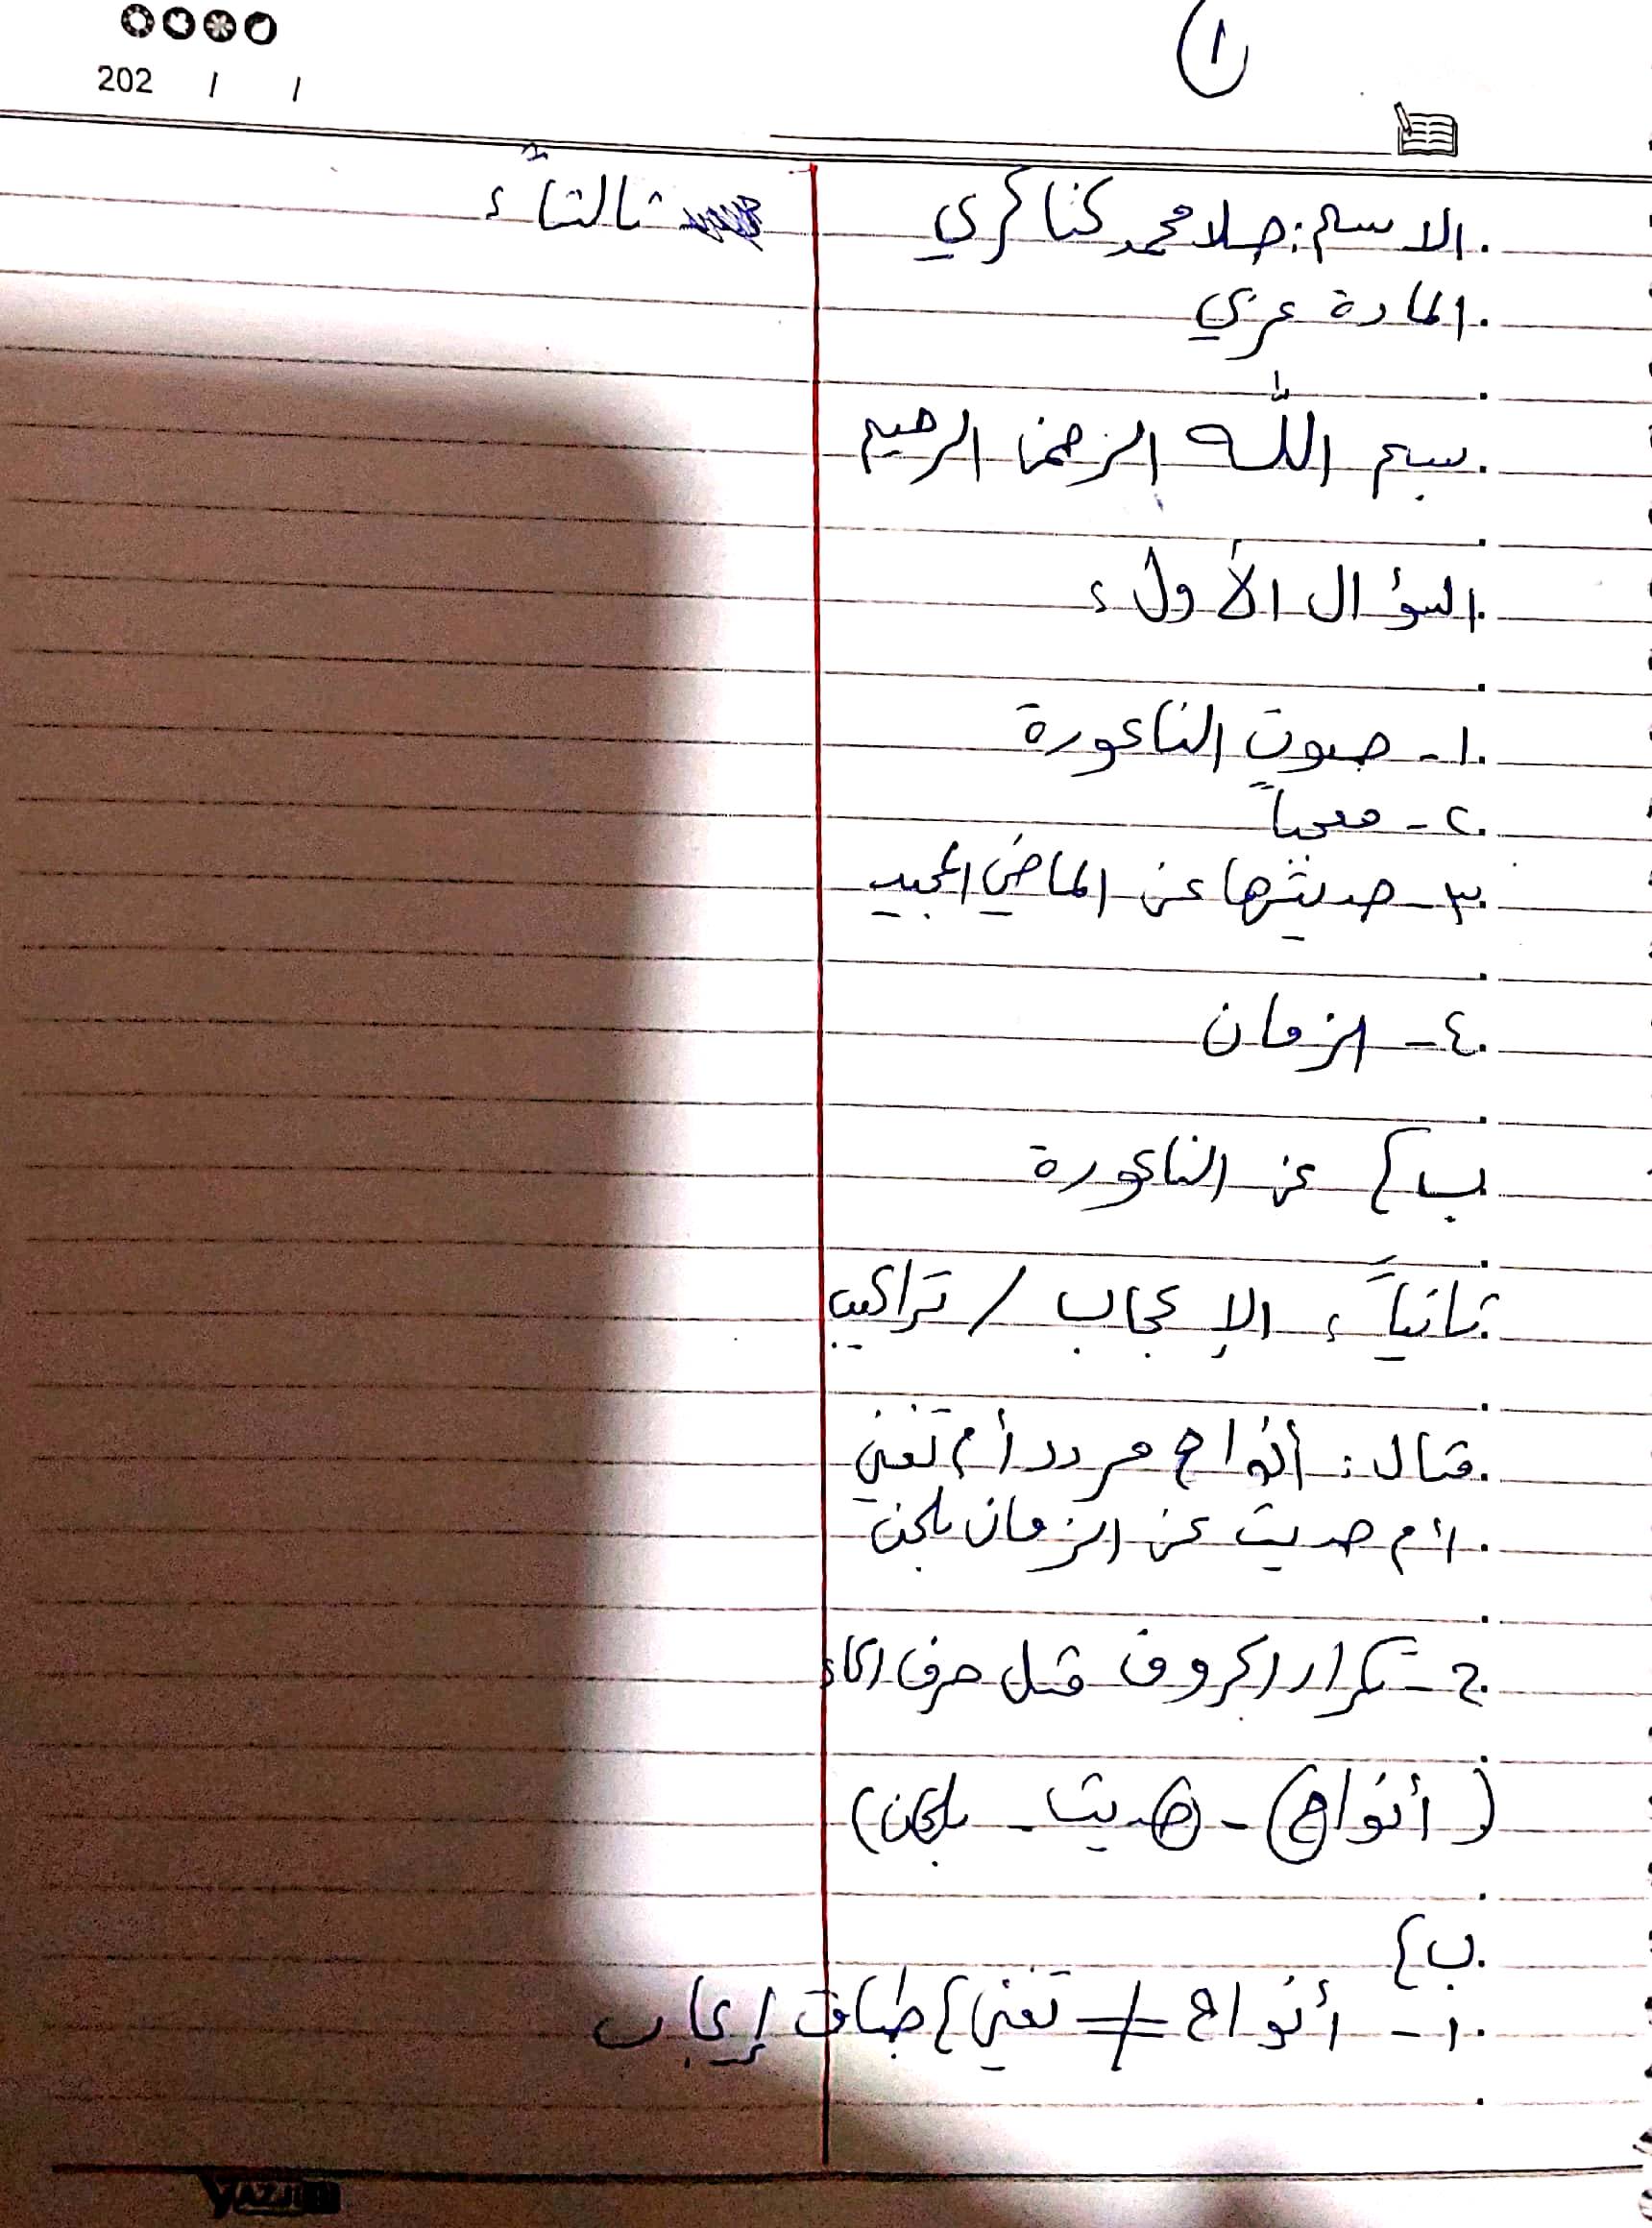 ١
202 / /
الاسم: حلا محمد كناكري
المادة عربي
بسم الله الرحمن الرحيم
السؤال الأول:
١- صوت الناعورة
٢- معجباً
٣- حديثها عن الماضي المجيد
٤- الزمان
ب} عن الناعورة
ثانياً: الإعجاب / تراكيب
مثال: أنواح مردد أم تغني
أم حديث عن الزمان بلحن
2- تكرار الحروف مثل حرف الحاء
(أنواح) - حديث - بلحن)
ب}
١- أنواح ≠ تغني} طباق إيجاب
ثالثاً:
YAZJI